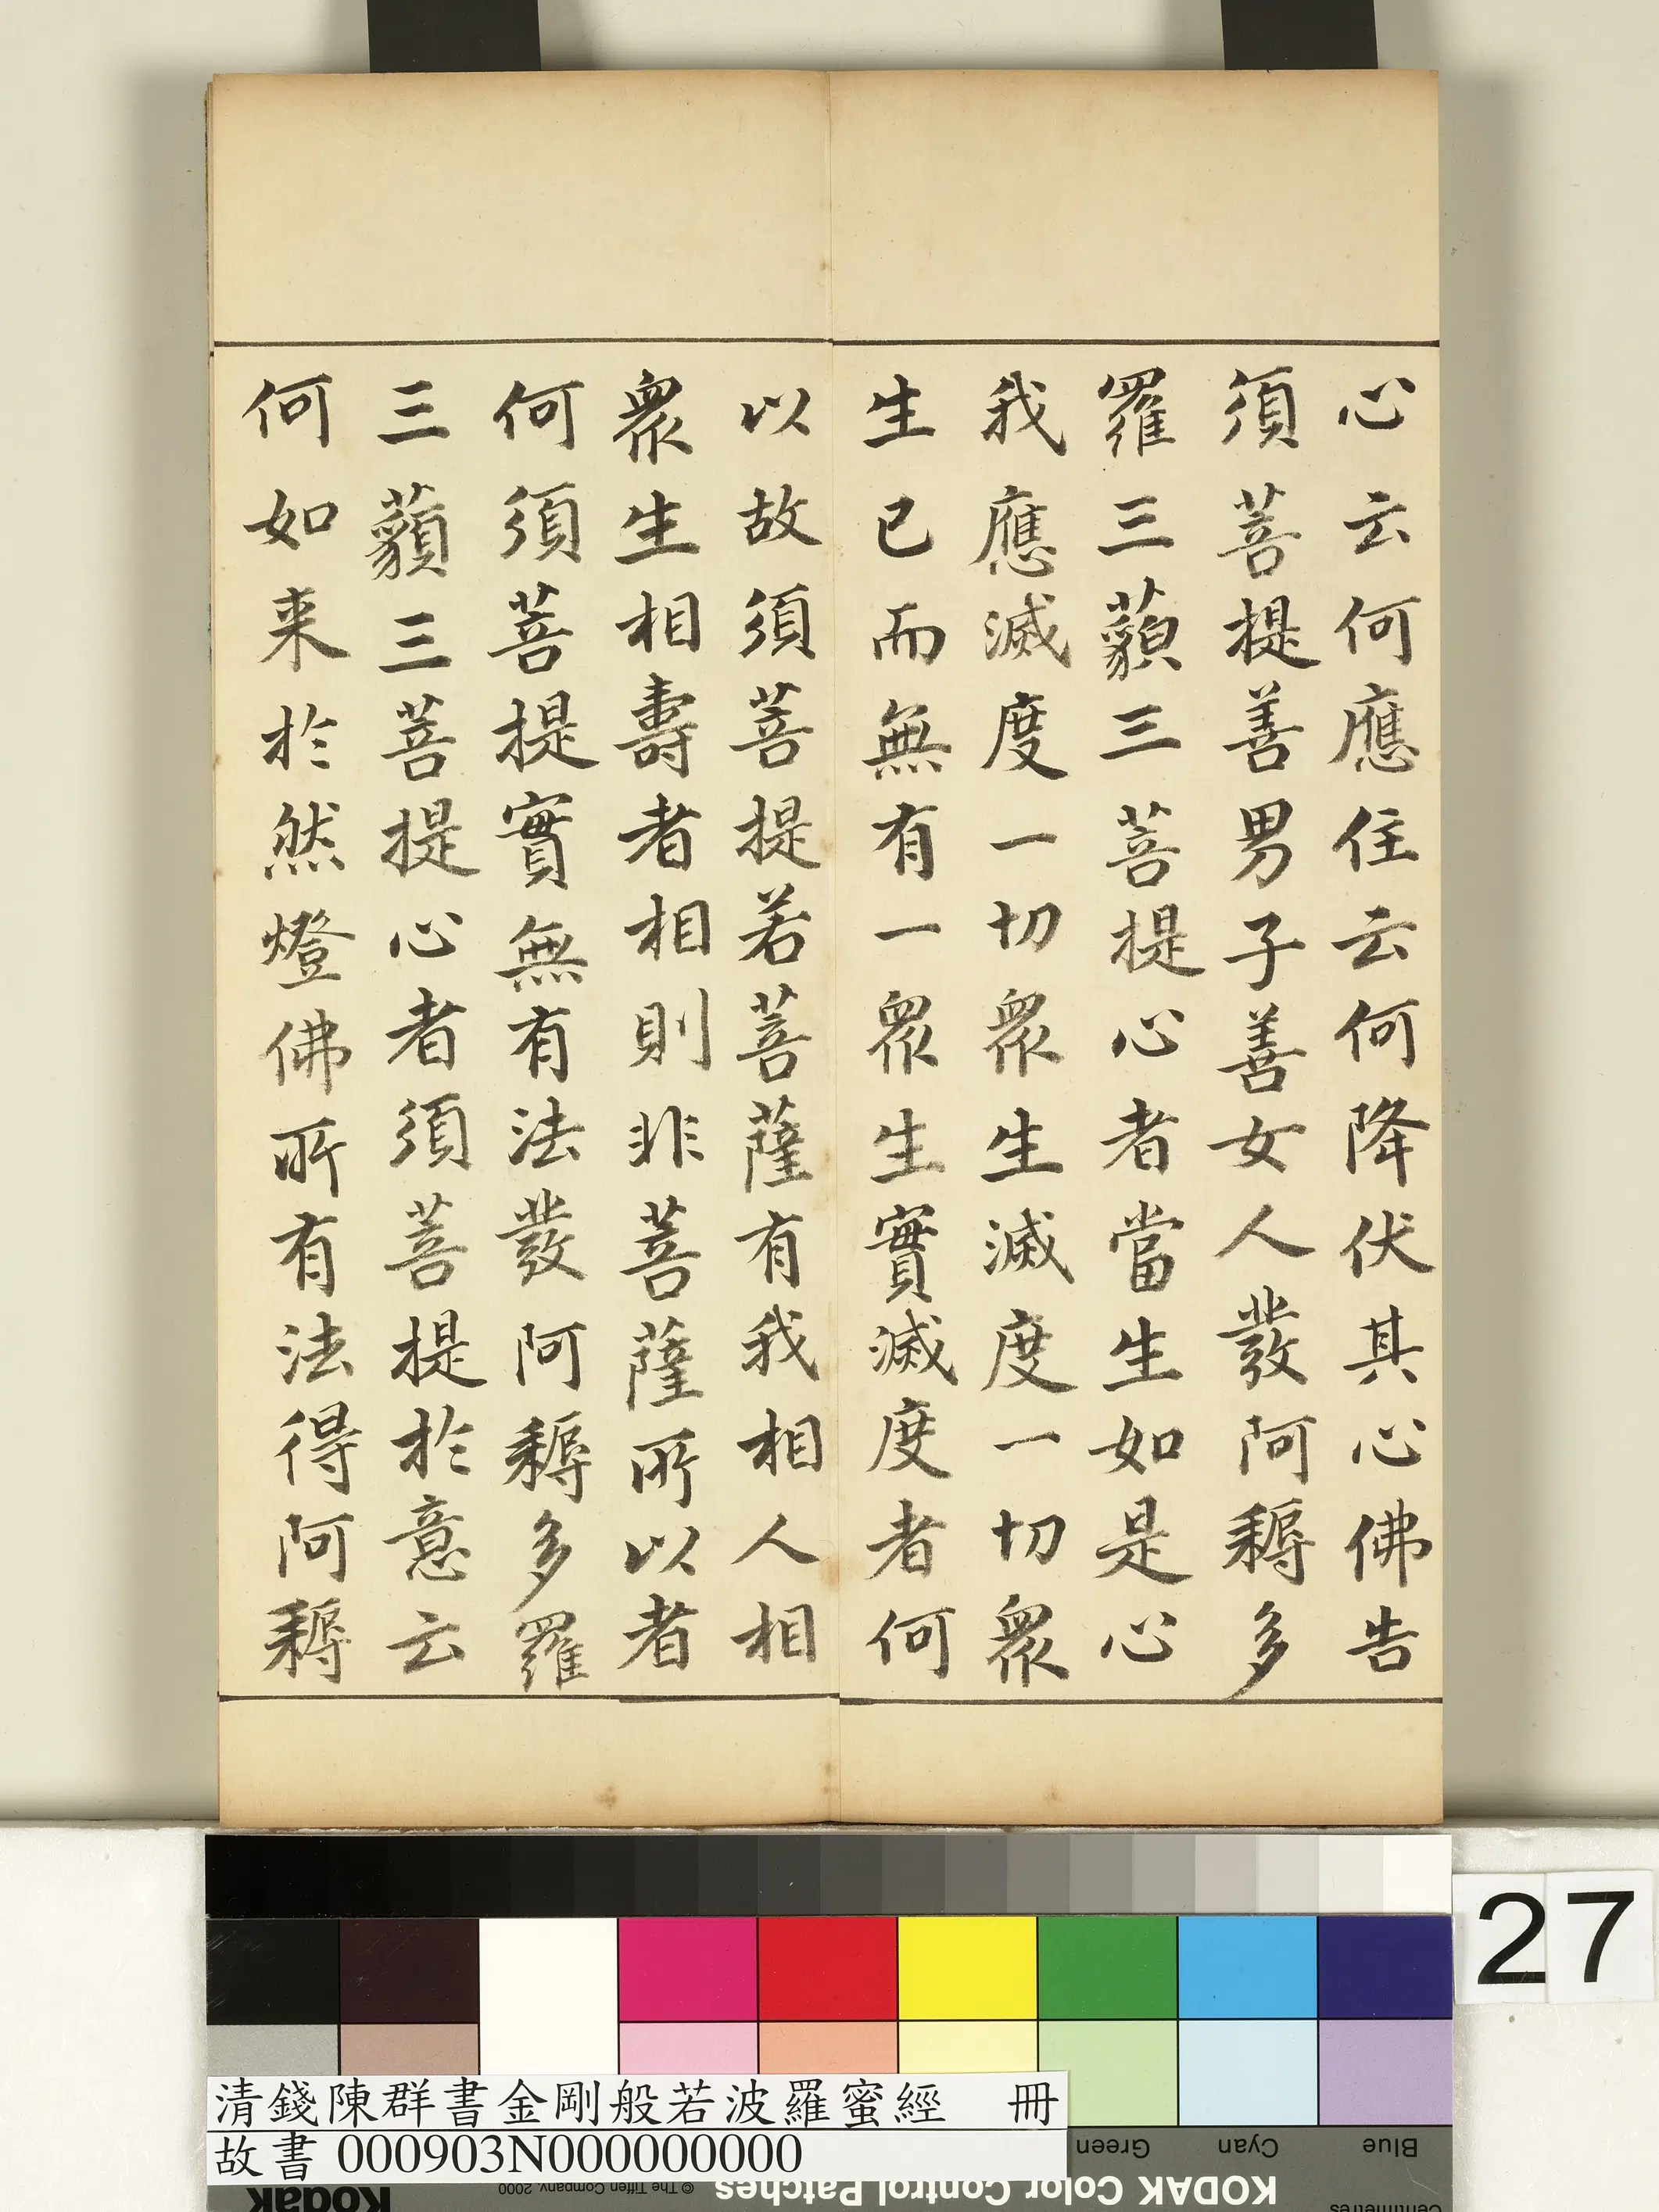 心云何應住云何降伏其心佛告
須菩提善男子善女人發阿耨多
羅三藐三菩提心者當生如是心
我應滅度一切衆生滅度一切衆
生已而無有一衆生實滅度者何
以故須菩提若菩薩有我相人相
衆生相壽者相則非菩薩所以者
何須菩提實無有法發阿耨多羅
三藐三菩提心者須菩提於意云
何如来於然燈佛所有法得阿耨
27
清錢陳群書金剛般若波羅蜜經 冊
故書 000903N000000000
Blue
Cyan
Green
KODAK Color Control Patches
© The Tiffen Company, 2000
Kodak
Centimetres